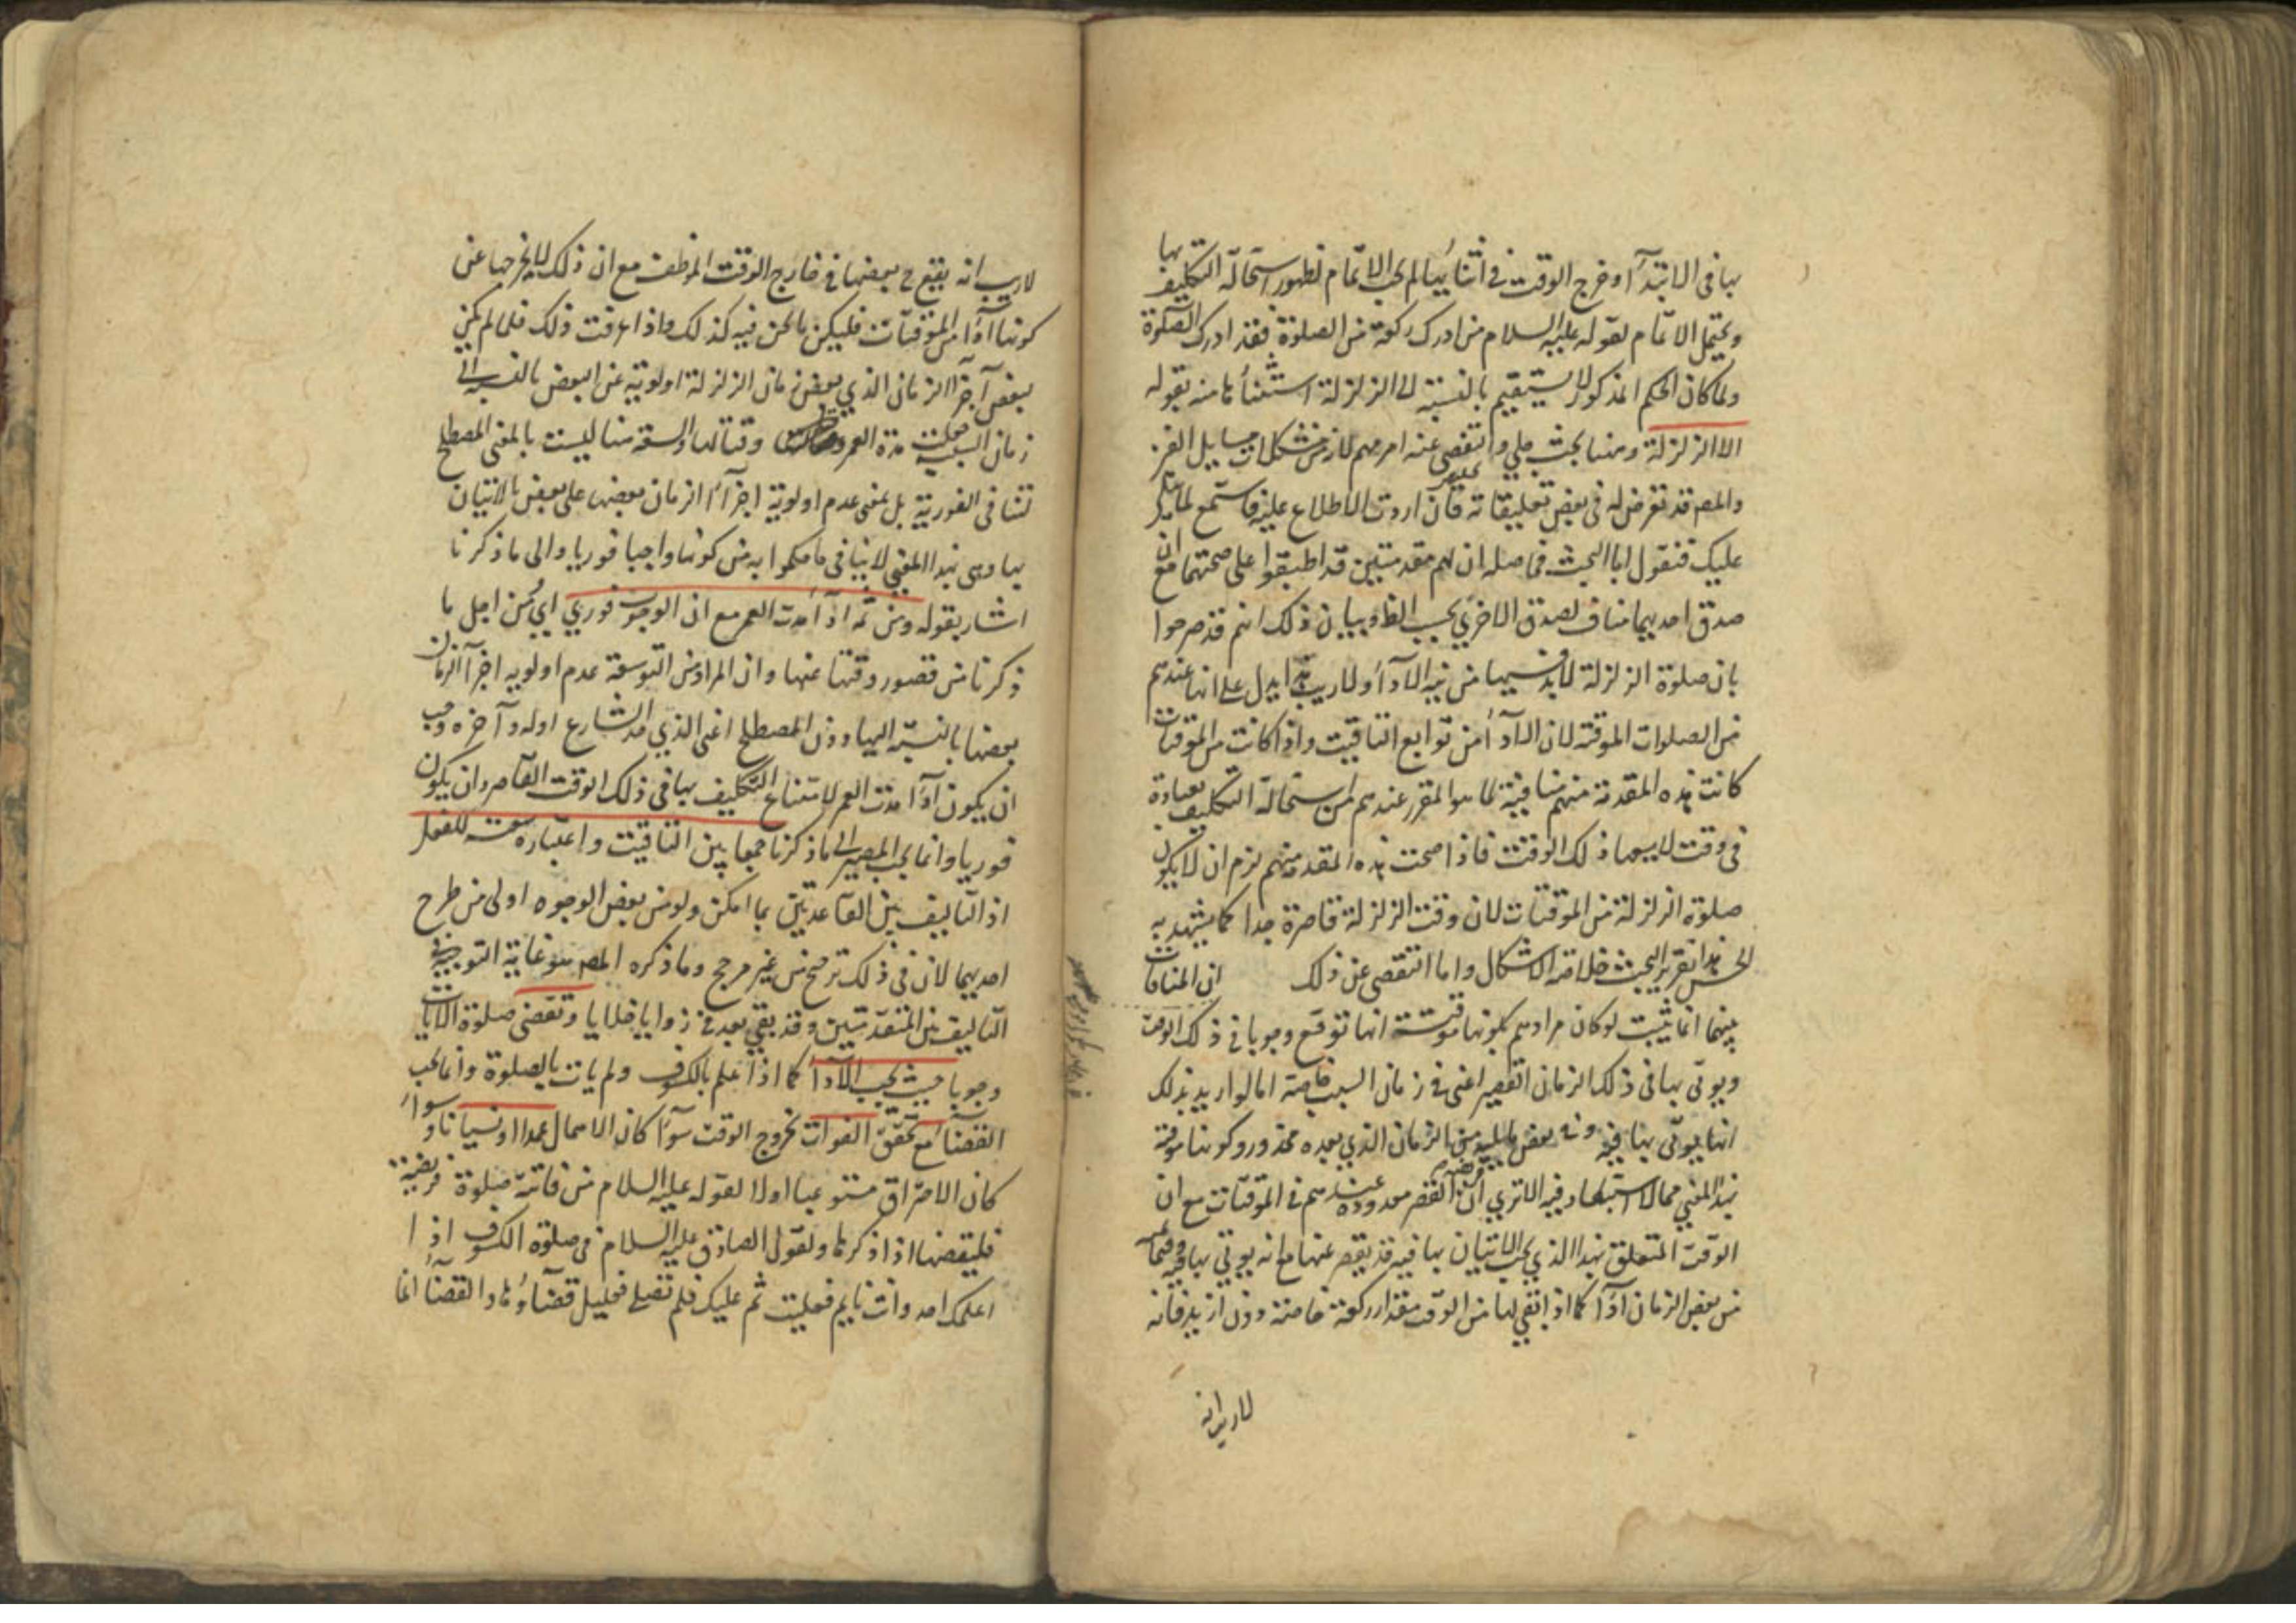 بها فى الابتدآ او خرج الوقت فى اثنائها لم يجب الاتمام لظهور استحالة التكليف بها
ويحتمل الاتمام لقوله عليه السلام من ادرك ركعة من الصلوة فقد ادرك الصلوة
ولما كان الحكم المذكور لا يستقيم بالنسبة الى الزلزلة استثناها منه بقوله
الا الزلزلة وهنا بحث جلي والتفصى عنه امر مهم لانه من مشكلات مسايل الفن
والمصر قد تعرض له فى بعض تعليقاته فان اردت الاطلاع عليه فاستمع لما يتلى
عليك فنقول اما البحث فحاصله ان لهم مقدمتين قد اطبقوا على صحتهما مع ان
صدق احديهما مناف لصدق الاخرى بحسب الظ وبيان ذلك انهم قد صرحوا
بان صلوة الزلزلة لابد فيها من نية الادآء ولا ريب ان هذا يدل على انها عندهم
من الصلوات الموقتة لان الادآء من توابع التاقيت واذا كانت من الموقتات
كانت هذه المقدمة منهم منافية لما هو المقرر عندهم من استحالة التكليف بعبادة
فى وقت لا يسعها ذلك الوقت فاذا صحت هذه المقدمة منهم لزم ان لا يكون
صلوة الزلزلة من الموقتات لان وقت الزلزلة قاصرة جدا كما يشهد به
الحس هذا تقرير البحث خلاصة الاشكال واما التفصى عن ذلك ان المنافات
بينهما انما يثبت لو كان مرادهم بكونها موقتة انها توقع وجوبا فى ذلك الوقت
ويوتى بها فى ذلك الزمان القصير اعنى فى زمان السبب خاصة اما لو اريد بذلك
انها يوتى بها فيه وفى بعض ما يليه من الزمان الذى بعده محذور وكونها موقتة
بهذا المعنى مما لا استبعاد فيه الا ترى ان القصر معدودة عندهم فى الموقتات مع ان
الوقت المتعلق بهذا الذى يجب الاتيان بها فيه قد يقصر عنها مع انه يوتى بها فيه وفيما
من بعض الزمان ادآء كما اذا بقى لها من الوقت مقدار ركعة خاصة دون ازيد فانه
لا ريب انه
لا ريب انه يقع ح بعضها فى خارج الوقت الموظف مع ان ذلك لا يخرجها عن
كونها ادآء من الموقتات فليكن ما نحن فيه كذلك واذا عرفت ذلك فلما لم يكن
لبعض اجزآء الزمان الذى بعض زمان الزلزلة اولوية عن البعض بالنسبة الى
زمان السببية جعلت مدة العمر وقتا لها والسعة هنا ليست بالمعنى المصطلح
تنافى الفورية بل بمعنى عدم اولوية اجزآء الزمان بعضها على بعض بالاتيان
بها وهى بهذا المعنى لا ينافى ما حكموا به من كونها واجبا فوريا والى ما ذكرنا
اشار بقوله ومن ثمه ادآء مدت العمر مع ان الوجوب فورى اى من اجل ما
ذكرنا من قصور وقتها عنها وان المراد من التوسعة عدم اولوية اجزآء الزمان
بعضها بالنسبة اليها دون المصطلح اعنى الذى حد الشارع اوله وآخره وجب
ان يكون ادآء مدت العمر لامتناع التكليف بها فى ذلك الوقت القاصر وان يكون
فوريا وانما يجب المصير الى ما ذكرنا جمعا بين التاقيت واعتباره سعته للفعل
اذ التاليف بين القاعدتين بما امكن ولو من بعض الوجوه اولى من طرح
احديهما لان فى ذلك ترجيح من غير مرجح وما ذكره المصر هو غاية التوجيه فى
التاليف بين المتقدمتين وقد بقى بعد فى زوايا خلايا وتقضى صلوة الايات
وجوبا حيث يجب الادآء كما اذا علم بالكسوف ولم يات بالصلوة وانما يجب
القضآء مع تحقق الفوات بخروج الوقت سوآء كان الاهمال عمدا او نسيانا وسوآء
كان الاحتراق مستوعبا او لا لقوله عليه السلام من فاتته صلوة فريضة
فليقضها اذا ذكرها ولقول الصادق عليه السلام فى صلوة الكسوف اذا
اعلمك احد وانت نايم فعلمت ثم عليك فلم تصلى فعليك قضآؤها والقضآء انما